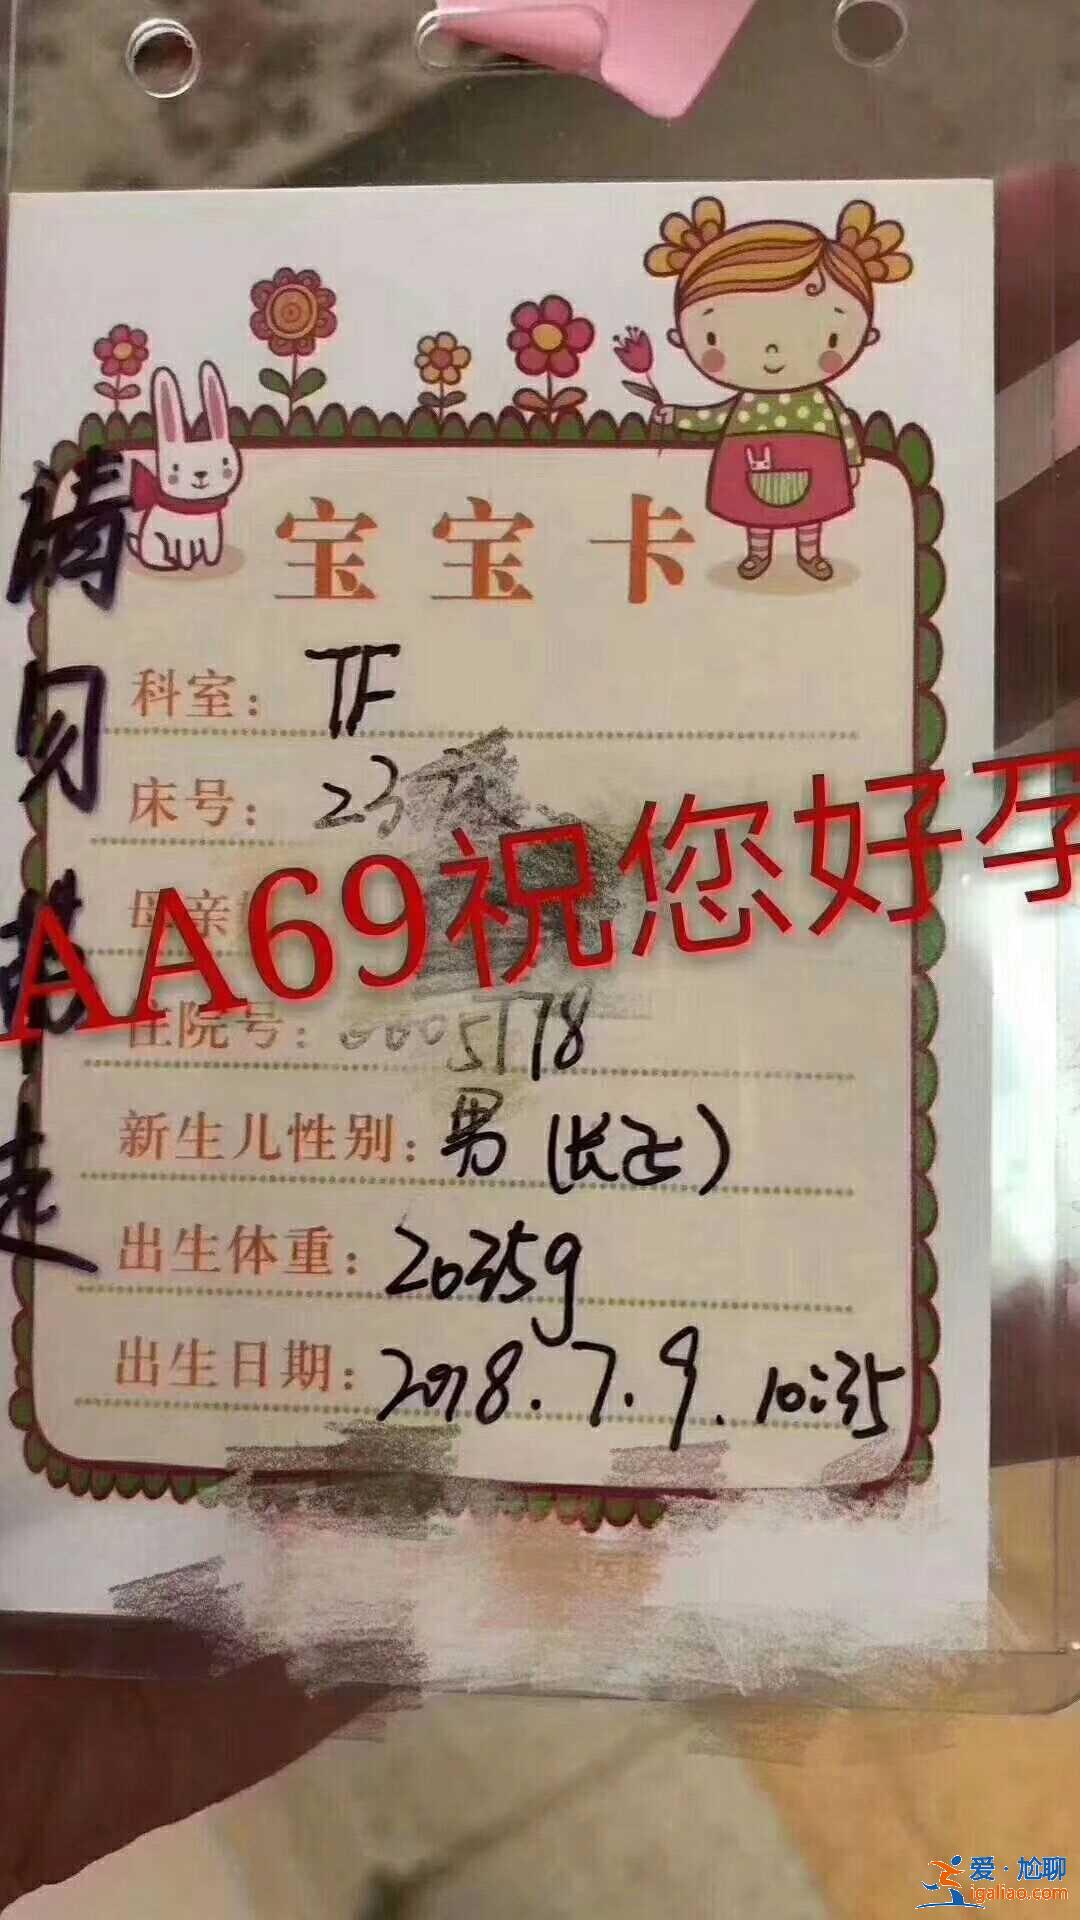 宝宝卡
科室: TF
床号: 23
母亲
AA69祝您好孕
住院号: 0005778
新生儿性别: 男 (长正)
出生体重: 2035g
出生日期: 2018.7.9. 10:35
请勿带走
爱·尬聊
igaliao.com